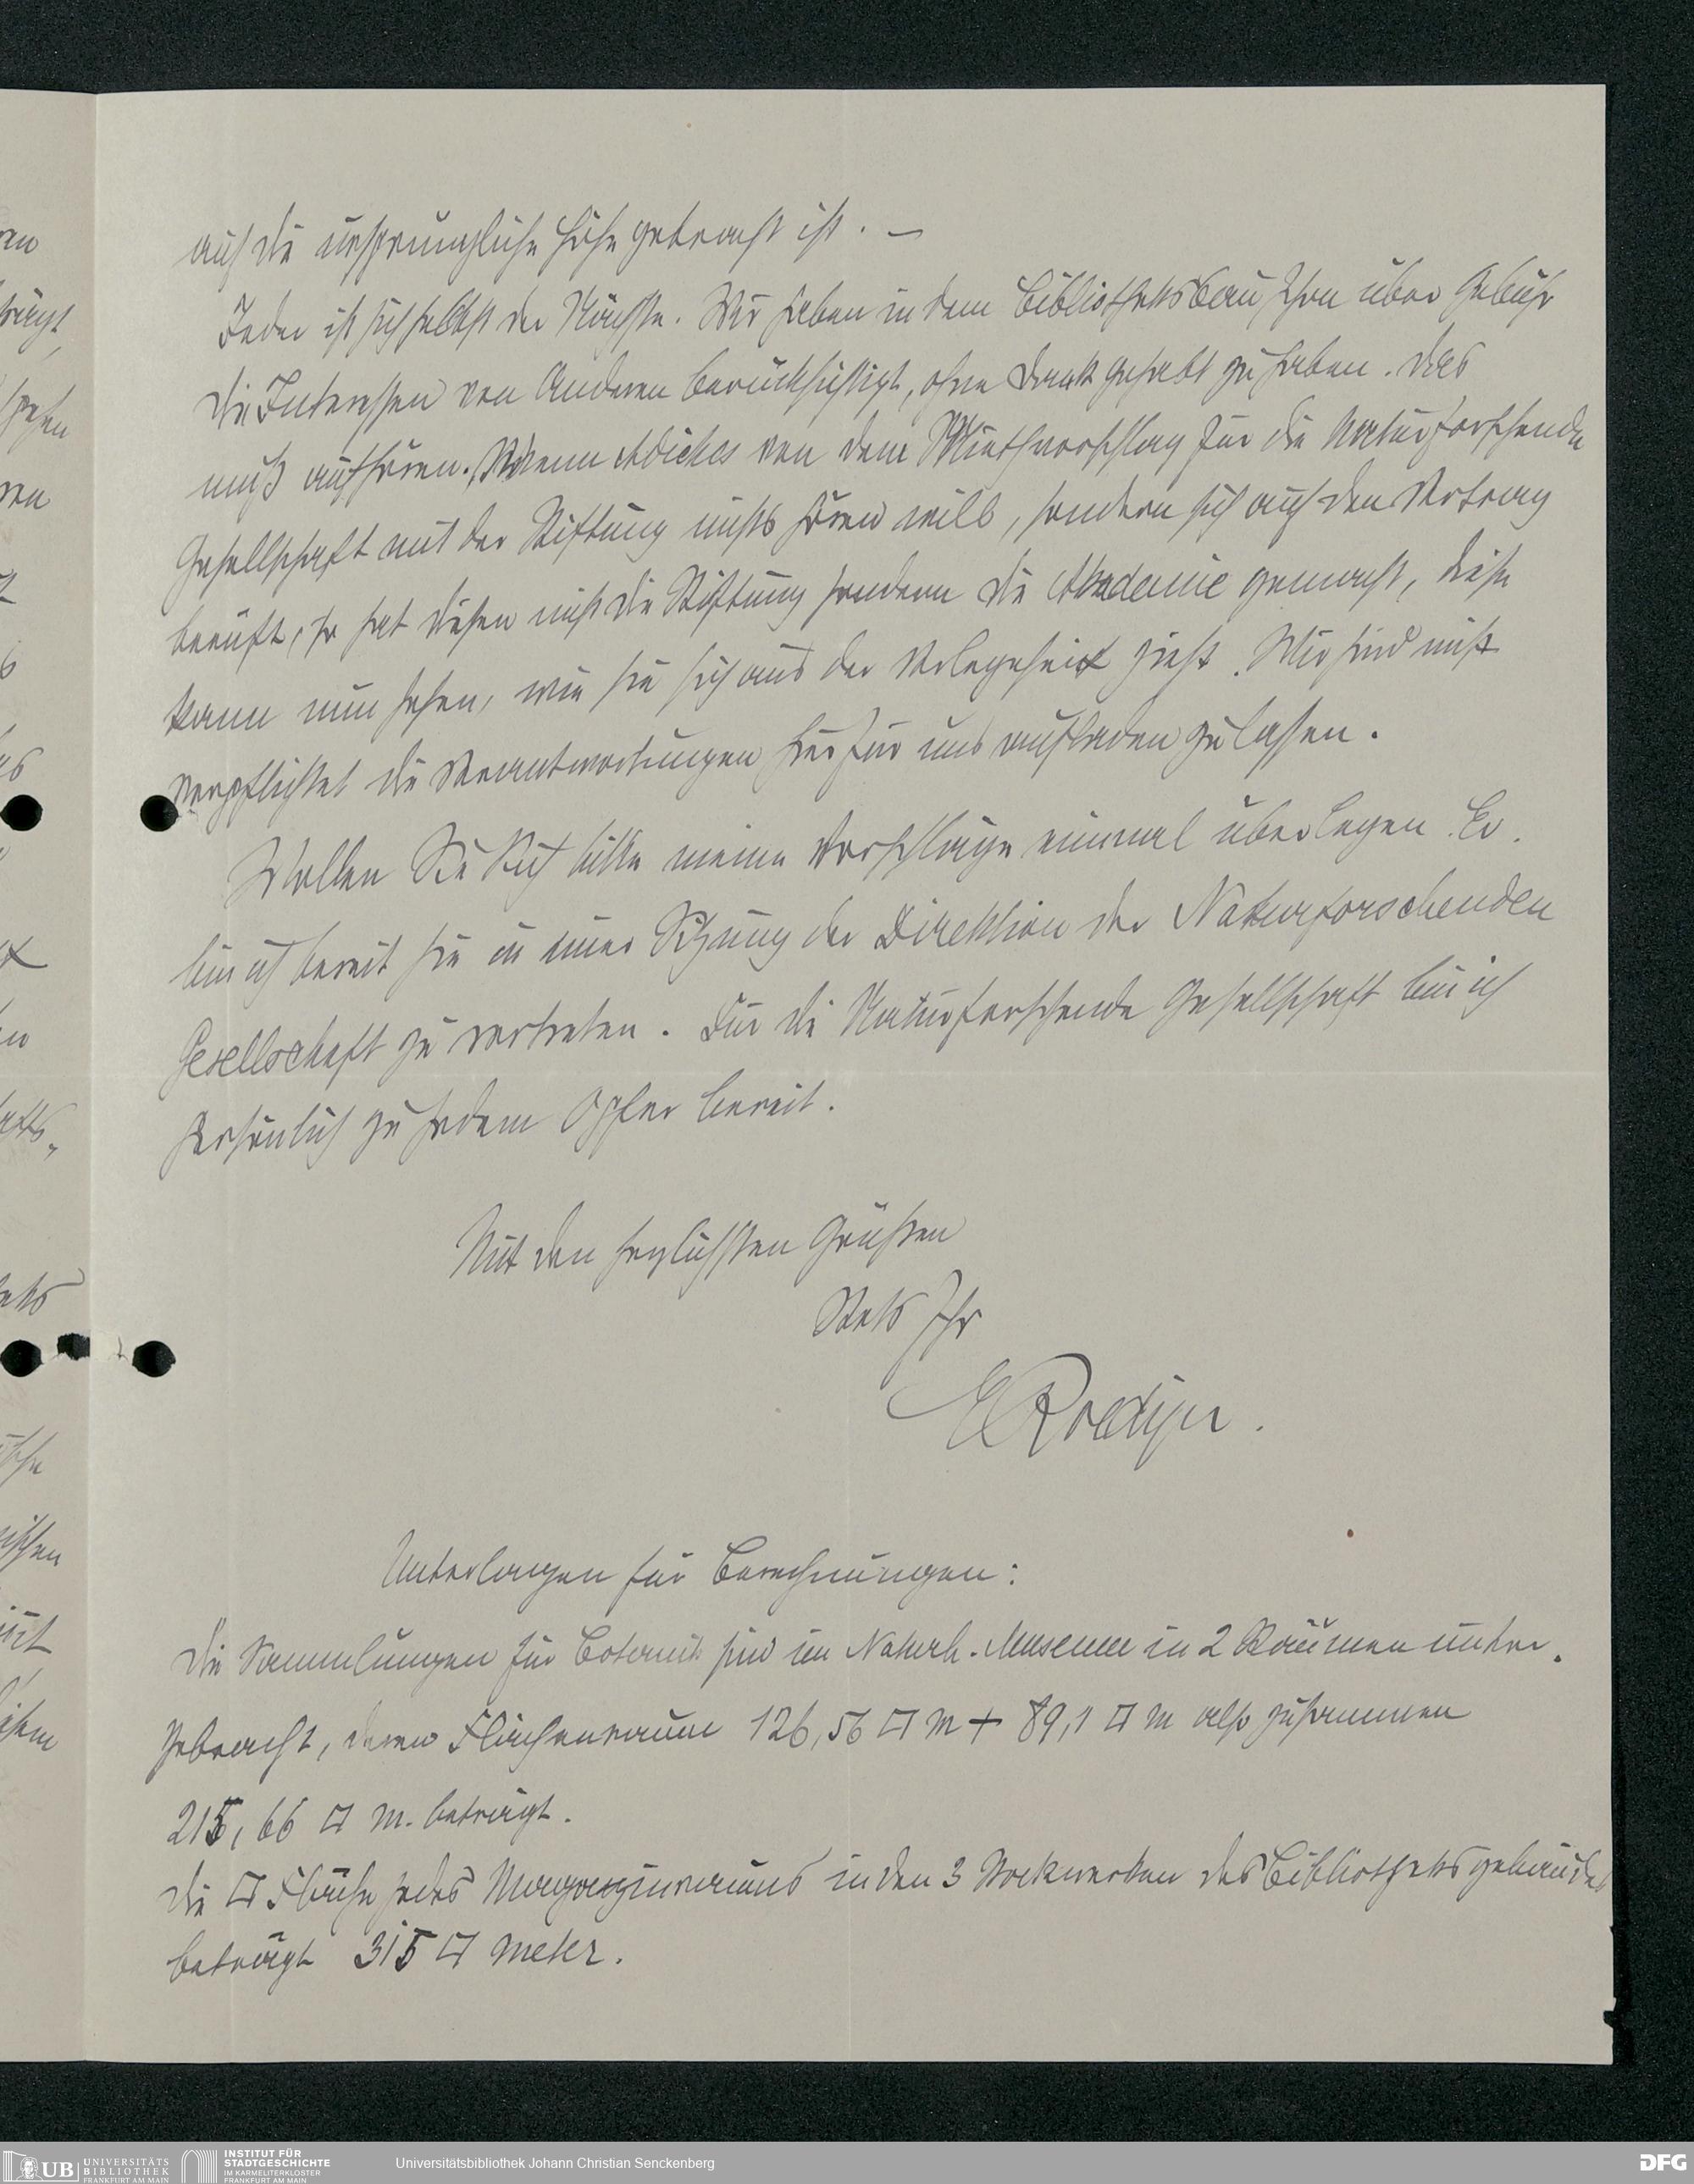 auf die ursprüngliche Höhe gebracht ist. —
Jeder ist sich selbst der Nächste. Wir haben in dem Bibliotheksbau schon über Gebühr
die Interessen von Anderen berücksichtigt, ohne Dank gehabt zu haben. Das
muß aufhören. Wenn Adickes von dem Miethvorschlag für die Naturforschende
Gesellschaft mit der Stiftung nichts hören will, sondern sich auf den Vertrag
beruft, so hat diesen nicht die Stiftung sondern die Akademie gemacht, diese
kann nun sehen, wie sie sich aus der Verlegenheit zieht. Wir sind nicht
verpflichtet die Verantwortungen hierfür uns aufladen zu lassen.
Wollen Sie sich bitte meine Vorschläge einmal überlegen.
bin ich bereit sie in einer Sitzung der Direktion der Naturforschenden
Gesellschaft zu vertreten. Für die Naturforschende Gesellschaft bin ich
persönlich zu jedem Opfer bereit.
Mit den herzlichsten Grüßen
Stets Ihr
E Roediger.
Unterlagen für Berechnungen:
Die Sammlungen für Botanik sind im Naturh. Museum in 2 Räumen unter-
gebracht, deren Flächenraum 126,56 □ m + 89,1 □ m also zusammen
215,66 □ m. beträgt.
die □ Fläche jedes Magazinraums in den 3 Stockwerken des Bibliotheksgebäudes
beträgt 315 □ Meter.
UB UNIVERSITÄTS
BIBLIOTHEK
FRANKFURT AM MAIN
INSTITUT FÜR
STADTGESCHICHTE
IM KARMELITERKLOSTER
FRANKFURT AM MAIN
Universitätsbibliothek Johann Christian Senckenberg
DFG